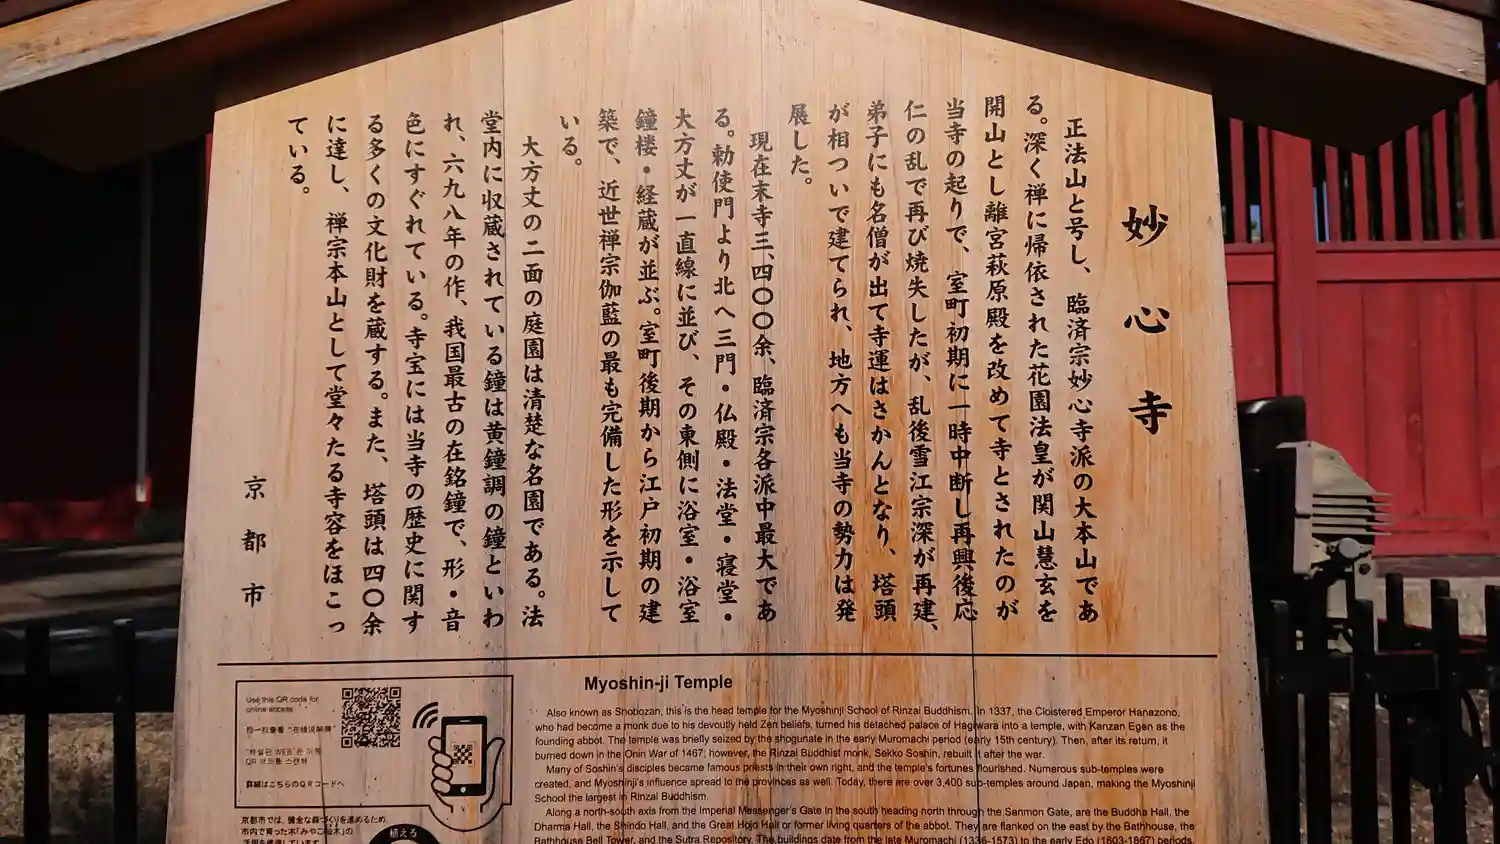 妙心寺
正法山と号し、臨済宗妙心寺派の大本山であ
る。深く禅に帰依された花園法皇が関山慧玄を
開山とし離宮萩原殿を改めて寺とされたのが
当寺の起りで、室町初期に一時中断し再興後応
仁の乱で再び焼失したが、乱後雪江宗深が再建、
弟子にも名僧が出て寺運はさかんとなり、塔頭
が相ついで建てられ、地方へも当寺の勢力は発
展した。
現在末寺三、四〇〇余、臨済宗各派中最大であ
る。勅使門より北へ三門・仏殿・法堂・寝堂・
大方丈が一直線に並び、その東側に浴室・浴室
鐘楼・経蔵が並ぶ。室町後期から江戸初期の建
築で、近世禅宗伽藍の最も完備した形を示して
いる。
大方丈の二面の庭園は清楚な名園である。法
堂内に収蔵されている鐘は黄鐘調の鐘といわ
れ、六九八年の作、我国最古の在銘鐘で、形・音
色にすぐれている。寺宝には当寺の歴史に関す
る多くの文化財を蔵する。また、塔頭は四〇余
に達し、禅宗本山として堂々たる寺容をほこっ
ている。
京都市
Use this QR code for
online access
扫一扫查看 "在线说明牌"
QR 코드를 스캔해
詳細はこちらのQRコードへ
京都市では、健全な森づくりを進めるため、
市内で育った木「みやこ杣木」の
植える
Myoshin-ji Temple
Also known as Shobozan, this is the head temple for the Myoshinji School of Rinzai Buddhism. In 1337, the Cloistered Emperor Hanazono,
who had become a monk due to his devoutly held Zen beliefs, turned his detached palace of Hagiwara into a temple, with Kanzan Egen as the
founding abbot. The temple was briefly seized by the shogunate in the early Muromachi period (early 15th century). Then, after its return, it
burned down in the Onin War of 1467; however, the Rinzai Buddhist monk, Sekko Soshin, rebuilt it after the war.
Many of Soshin's disciples became famous priests in their own right, and the temple's fortunes flourished. Numerous sub-temples were
created, and Myoshinji's influence spread to the provinces as well. Today, there are over 3,400 sub-temples around Japan, making the Myoshinji
School the largest in Rinzai Buddhism.
Along a north-south axis from the Imperial Messenger's Gate in the south heading north through the Sanmon Gate, are the Buddha Hall, the
Dharma Hall, the Shindo Hall, and the Great Hojo Hall or former living quarters of the abbot. They are flanked on the east by the Bathhouse, the
Bathhouse Bell Tower, and the Sutra Repository. The buildings date from the late Muromachi (1336-1573) to the early Edo (1603-1867) periods,